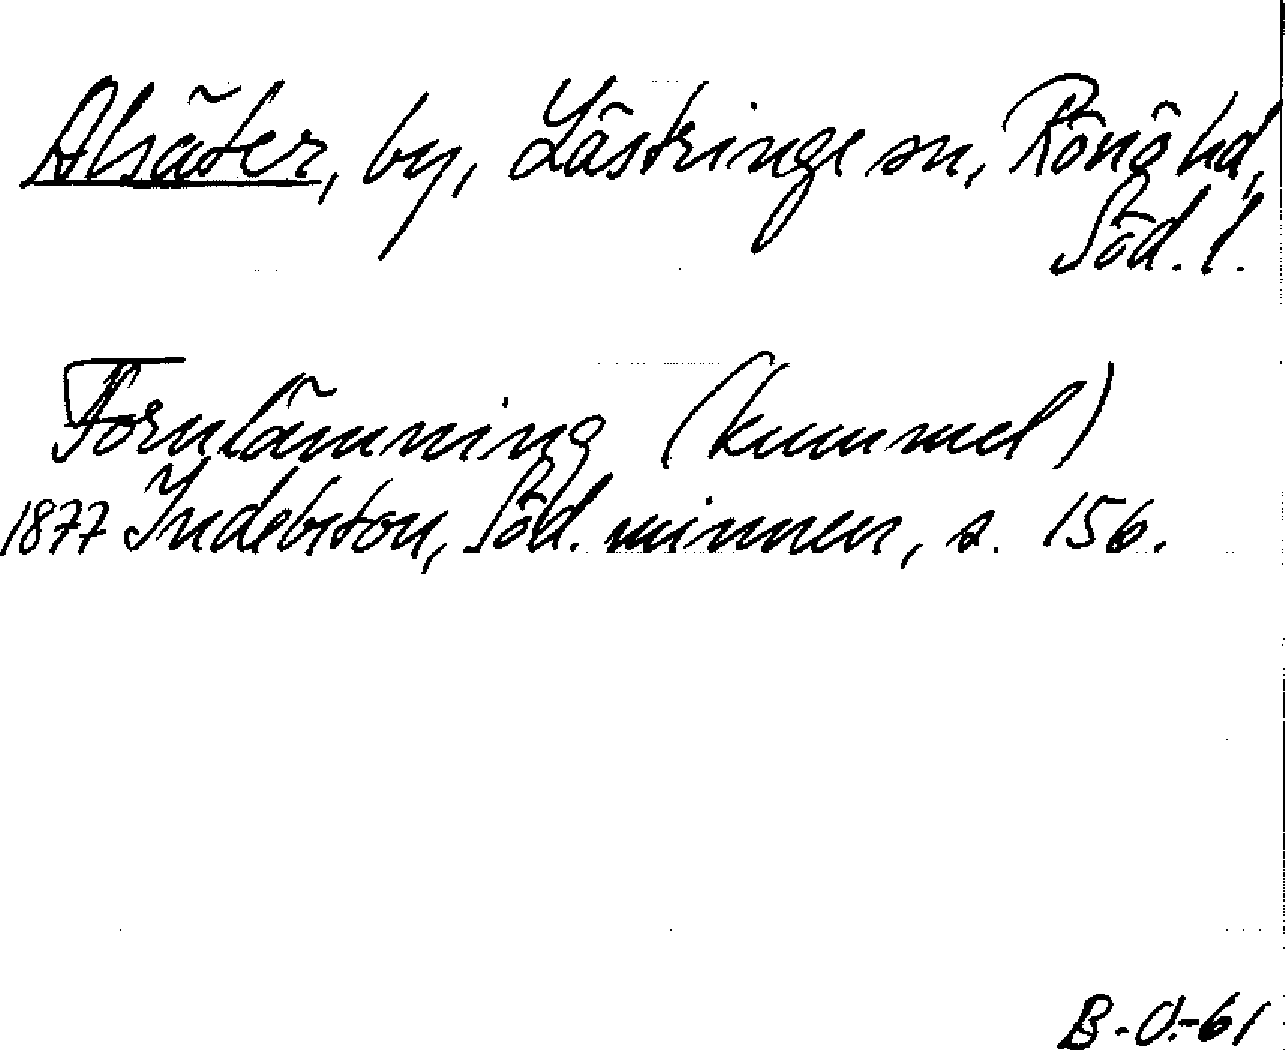 Alsäter, by, Lästringe sn, Rönö hd,
Söd. l.
Fornlämning (kummel)
1877 Indebetou, Söd. minnen, s. 156.
B-O.-61